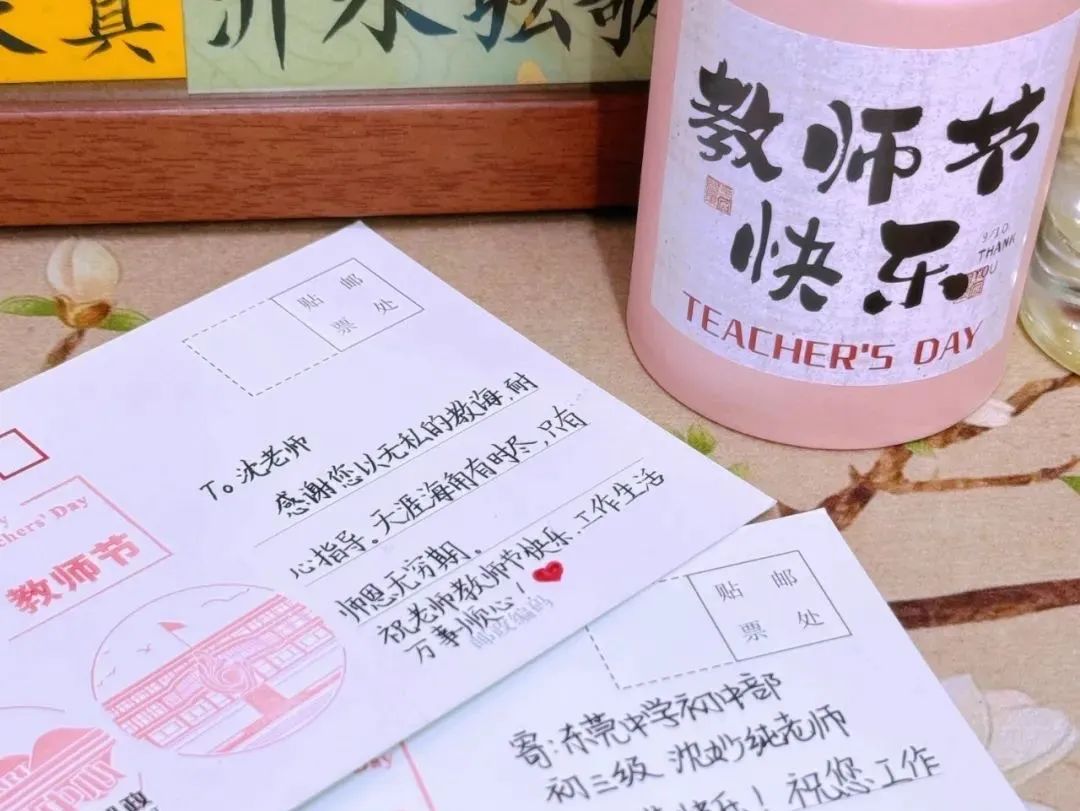 真
沂水弦歌
教师节
快乐
9/10
THANK
YOU
TEACHER'S DAY
贴 邮
票 处
To 沈老师
感谢您以无私的教诲,耐
心指导。天涯海角有时尽,只有
师恩无穷期。
祝老师教师节快乐,工作生活
万事顺心!
邮政编码
Teachers' Day
教师节
贴 邮
票 处
寄:东莞中学初中部
初三级 沈妙纯老师
快乐!祝您工作
Day
ART